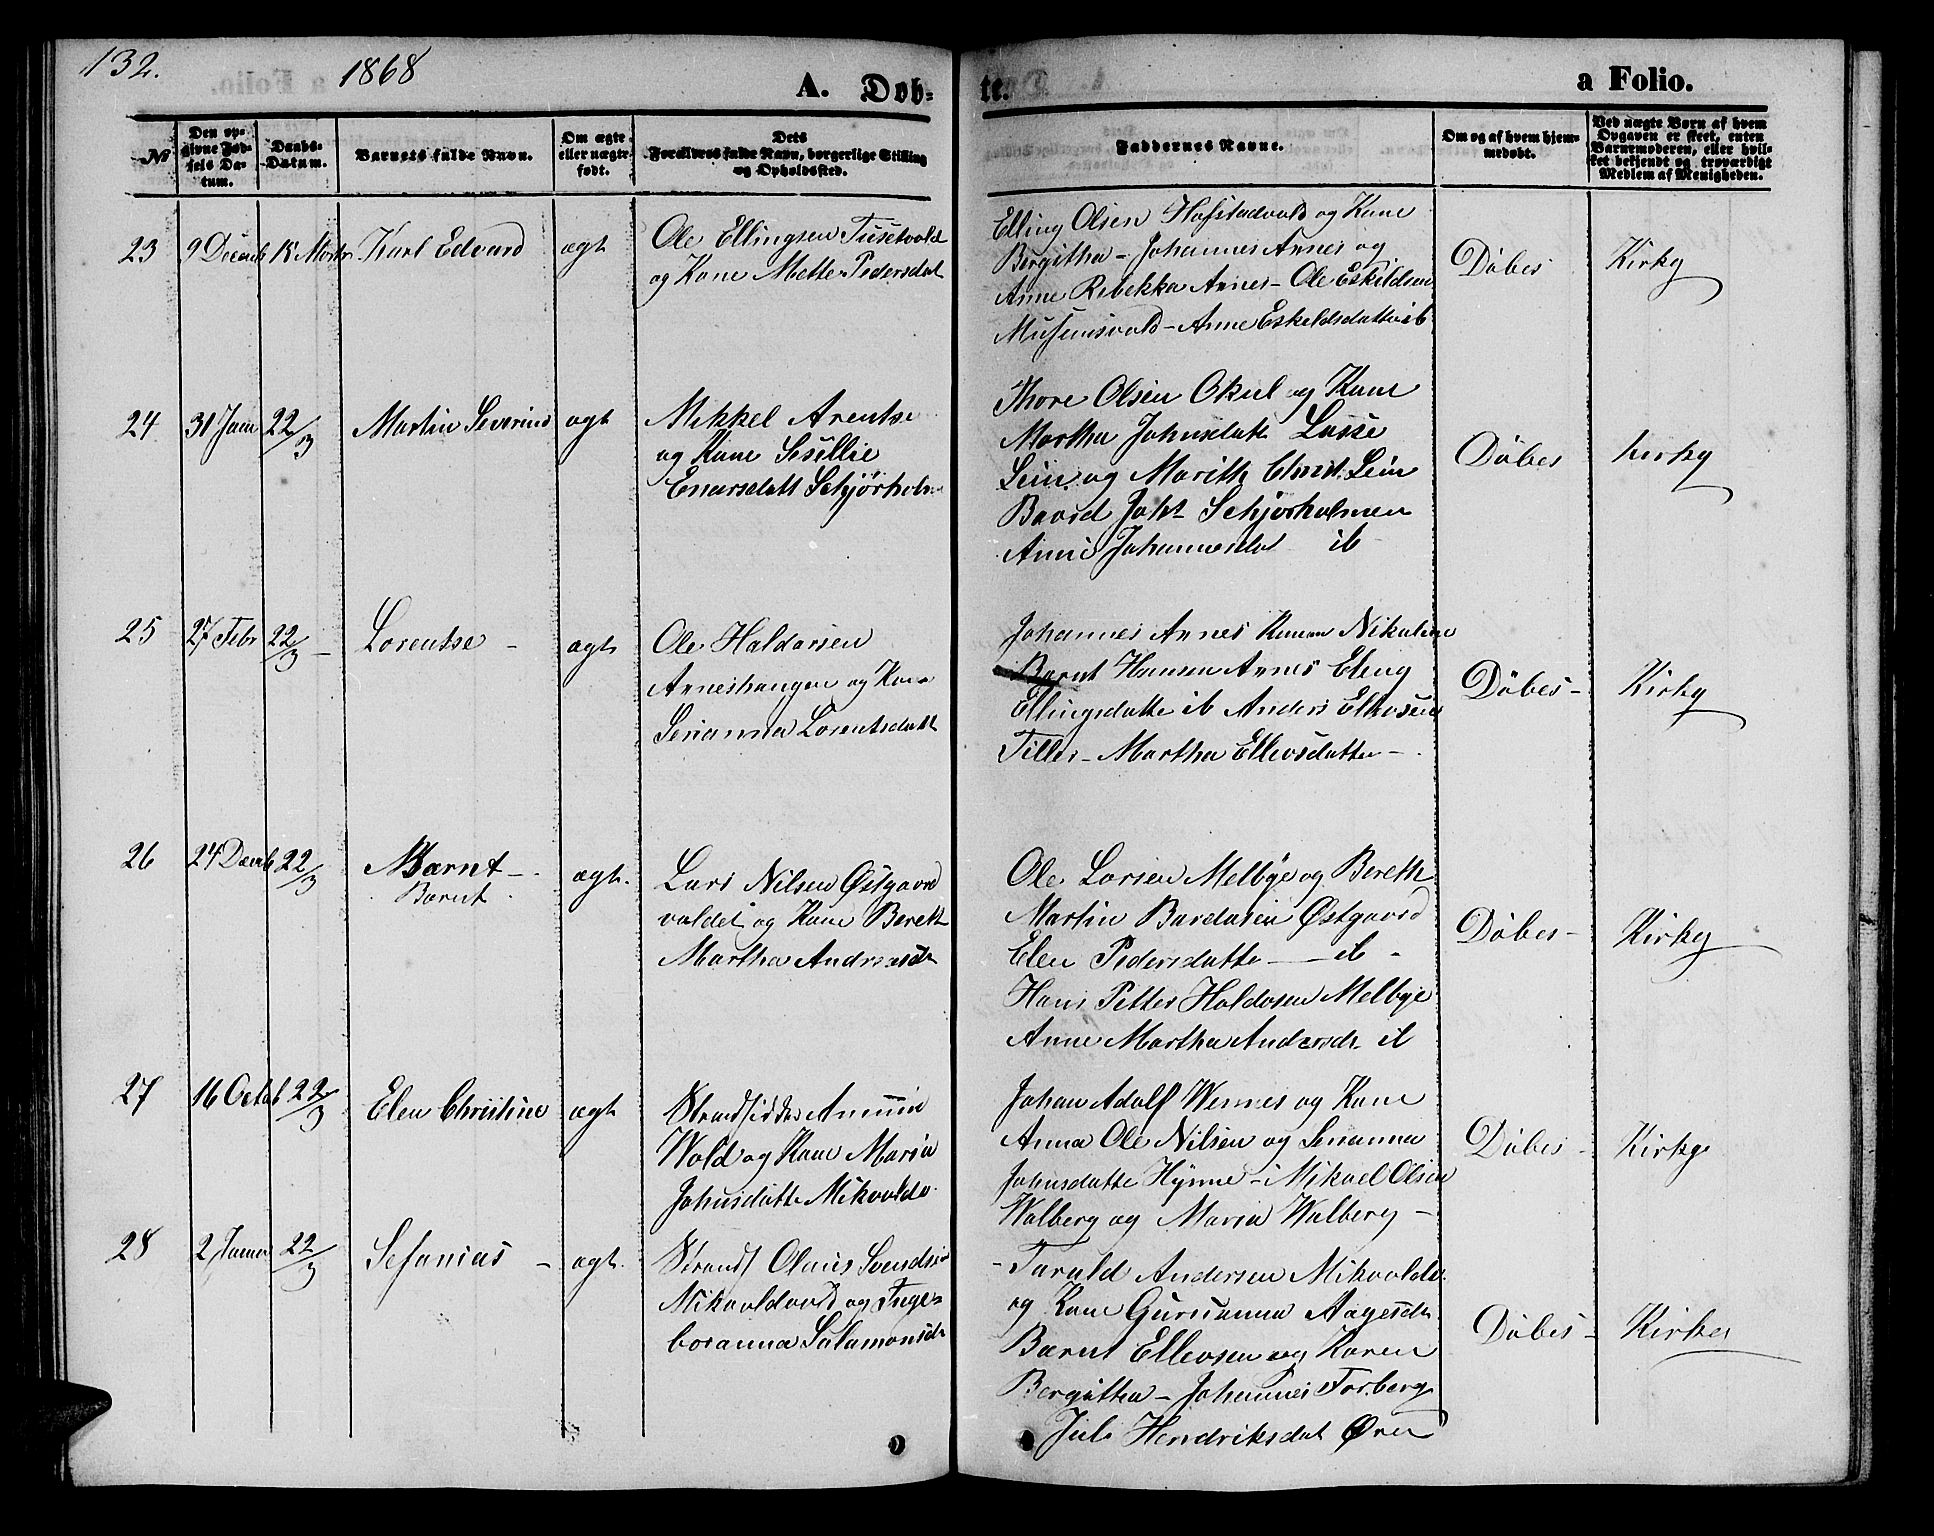 132.
1868
A. Døb-
te.
a Folio.
No
Den op-
givne Fød-
sels Da-
tum.
Daabs-
Datum.
Barnets fulde Navn.
Om ægte
eller uægte
født.
Dets
Forældres fulde Navn, borgerlige Stilling
og Opholdssted.
Faddernes Navne.
Om og af hvem hjem-
medøbt.
Ved uægte Børn af hvem
Opgaven er skeet, enten
Barnemoderen, eller hvil-
ket bekjendt og troværdigt
Medlem af Menigheden.
23
9 Decemb
15 Marts
Karl Edvard
ægt
Ole Ellingsen Tusetvold
og Kone Mette Pedersdat
Elling Olsen Hofstadvold og Kone
Bergitha - Johannes Arnes og
Anne Rebekka Arnes - Ole Eskildsen
Musumsvold - Anne Eskeldsdatter ib
Døbes
Kirky
24
31 Janu
22/3
Martin Severin
ægt
Mikkel Arents
og Kone Sesellie
Enarsdatt Schjørholm
Thore Olsen Okul og Kone
Martha Johnsdatt Lasse
Lein og Marith Christ. Lein
Baard Joh Schjørholmen
Anne Johannesdat ib
Døbes
Kirky
25
27 Febr
22/3 -
Lorentse -
ægt
Ole Haldorsen
Arneshaugen og Kone
Serianna Lorentsdatt
Johannes Arnes Konen Nikoline
Bernt Hansen Arnes Eling
Ellingsdatte ib Anders Ellevsen
Tiller - Martha Ellevsdatter -
Døbes -
Kirky
26
24 Decmb
22/3
Bærnt -
Bærnt
ægt.
Lars Nilsen Østgaard
valdet og Kone Bereth
Martha Andreasdr
Ole Larsen Melbye og Bereth
Martin Bardosen Østgaard
Elen Pedersdatte - ib -
Hans Petter Haldosen Melbye
Anne Martha Andersdr ib
Døbes -
Kirky
27
16 Octob
22/3
Elen Christine
ægt
Strandsidder Anton
Wold og Kone Maria
Johnsdatte Mikvolds
Johan Adolf Wennes og Kone
Anna Ole Nilsen og Serianna
Johnsdatte Hynne - Mikael Olsen
Walberg og Maria Walberg -
Døbes -
Kirkge
28
2 Januar
22/3
Sefanias -
ægt.
Strands Olaus Svendsen
Mikvoldvold og Inge-
boranna Salamonsdr
- Tarald Andersen Mikvolds.
og Kone Gurianna Aagesdr
Bærnt Ellevsen og Karen
Bergittha - Johannes Forberg
Juli Hendriksdat Øren
Døbes -
Kirky